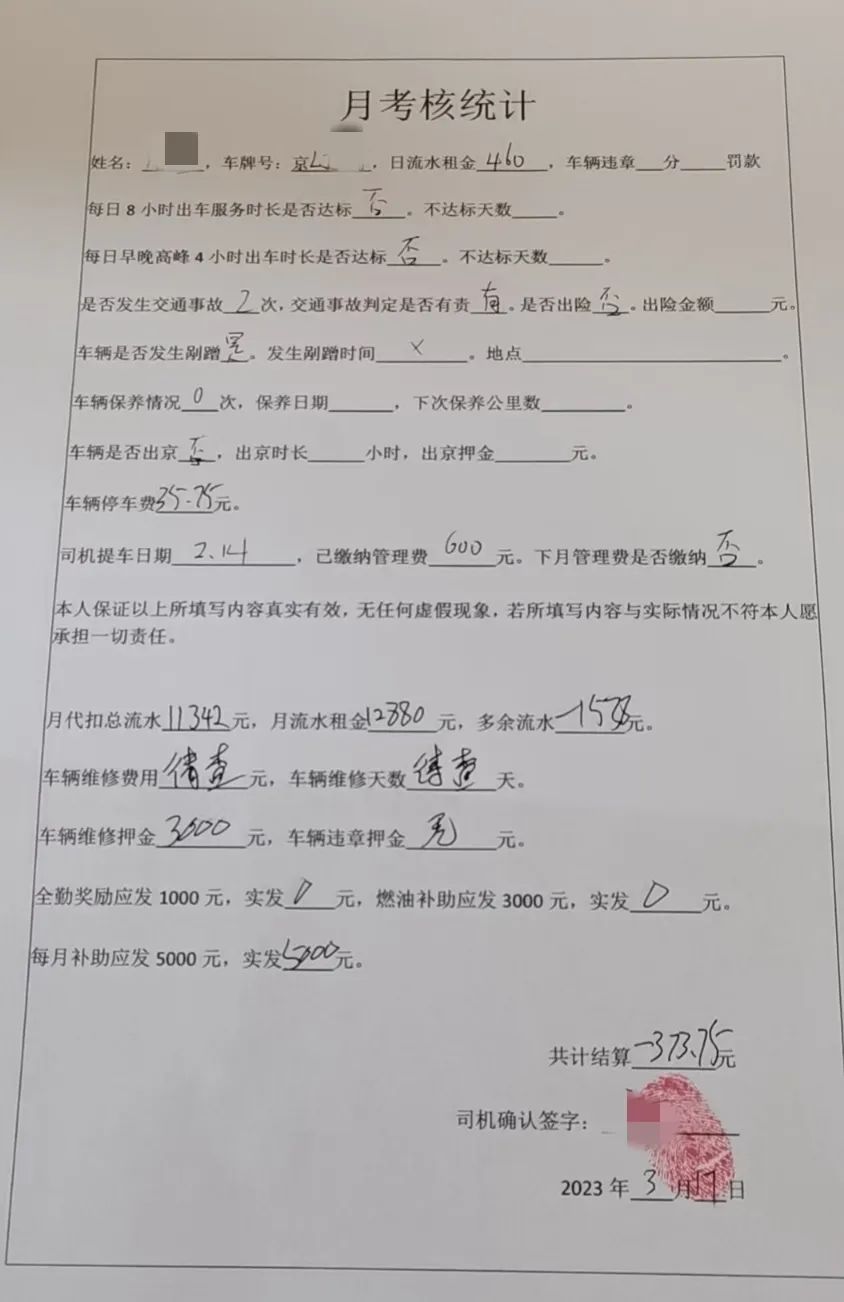 月考核统计
姓名：，车牌号：京L，日流水租金460，车辆违章___分_____罚款
每日8小时出车服务时长是否达标否。不达标天数_____。
每日早晚高峰4小时出车时长是否达标否。不达标天数______。
是否发生交通事故2次，交通事故判定是否有责有。是否出险否。出险金额______元。
车辆是否发生剐蹭是。发生剐蹭时间×。地点____________。
车辆保养情况0次，保养日期_______，下次保养公里数_________。
车辆是否出京否，出京时长______小时，出京押金________元。
车辆停车费35.75元。
司机提车日期2.14，已缴纳管理费600元。下月管理费是否缴纳否。
本人保证以上所填写内容真实有效，无任何虚假现象，若所填写内容与实际情况不符本人愿
承担一切责任。
月代扣总流水11342元，月流水租金12880元，多余流水-1538元。
车辆维修费用待查元，车辆维修天数待查天。
车辆维修押金3000元，车辆违章押金元。
全勤奖励应发1000元，实发0元，燃油补助应发3000元，实发0元。
每月补助应发5000元，实发5000元。
共计结算-373.75元
司机确认签字：
2023年3月17日